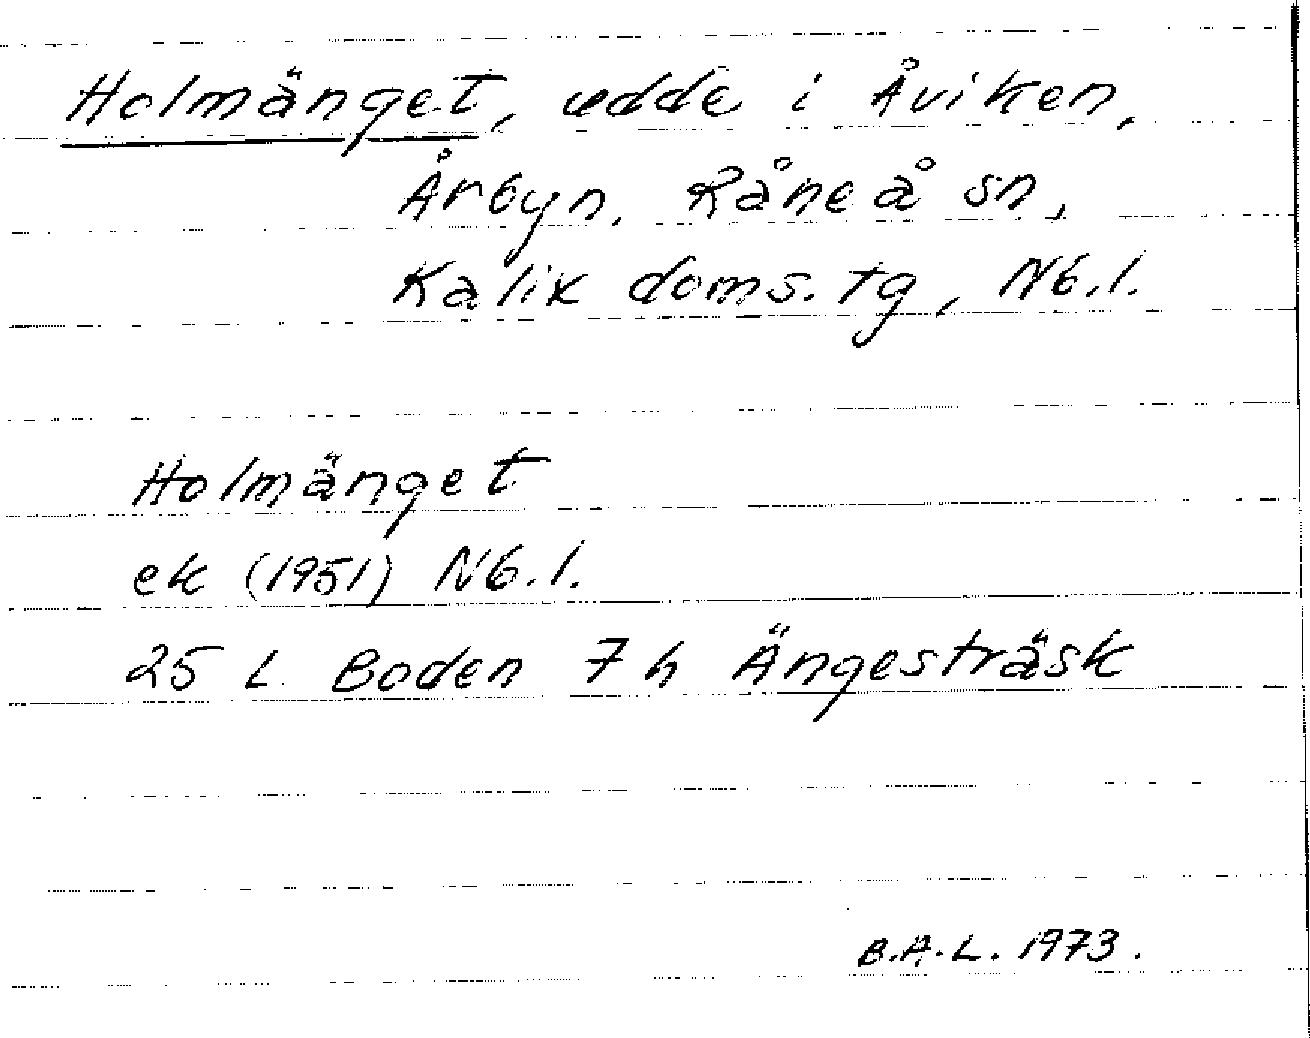 Holmänget, udde i Åviken,
Årbyn, Råneå sn,
Kalix doms. tg, Nb.l.
Holmänget
ek (1951) Nb.l.
25 L Boden 7 h Ängesträsk
B.A.L. 1973.